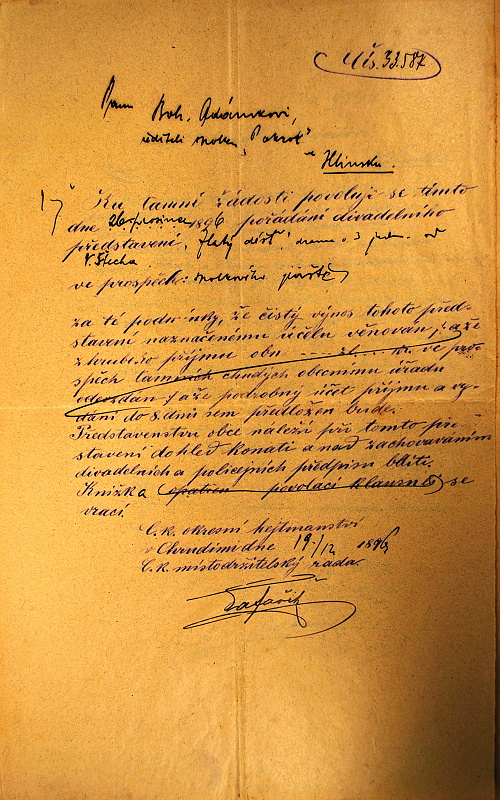 čís. 33.587
Panu Boh. Adámkovi,
řediteli spolku „Pokrok"
v Hlinsku.
Ku tamní žádosti povoluje se tímto
dne 26 prosince 1896 pořádání divadelního
představení, „Zlatý déšť" drama o 3 jedn. od
V. Štecha
ve prospěch: spolkového jmění
za té podmínky, že čistý výnos tohoto před-
stavení naznačenému účelu věnován, a že
z hrubého příjmu obn ve pro-
spěch tamních chudých obecnímu úřadu
odevzdán a že podrobný účet příjmu a vy-
dání do 8. dnů sem předložen bude.
Představenstvu obce náleží při tomto před-
stavení dohled konati a nad zachováváním
divadelních a policejních předpisů bdíti.
Knížka opatřena povolací klausulí se
vrací.
C. k. okresní hejtmanství
v Chrudimi dne 19./12 1896
C. k. místodržitelský rada.
Šafařík